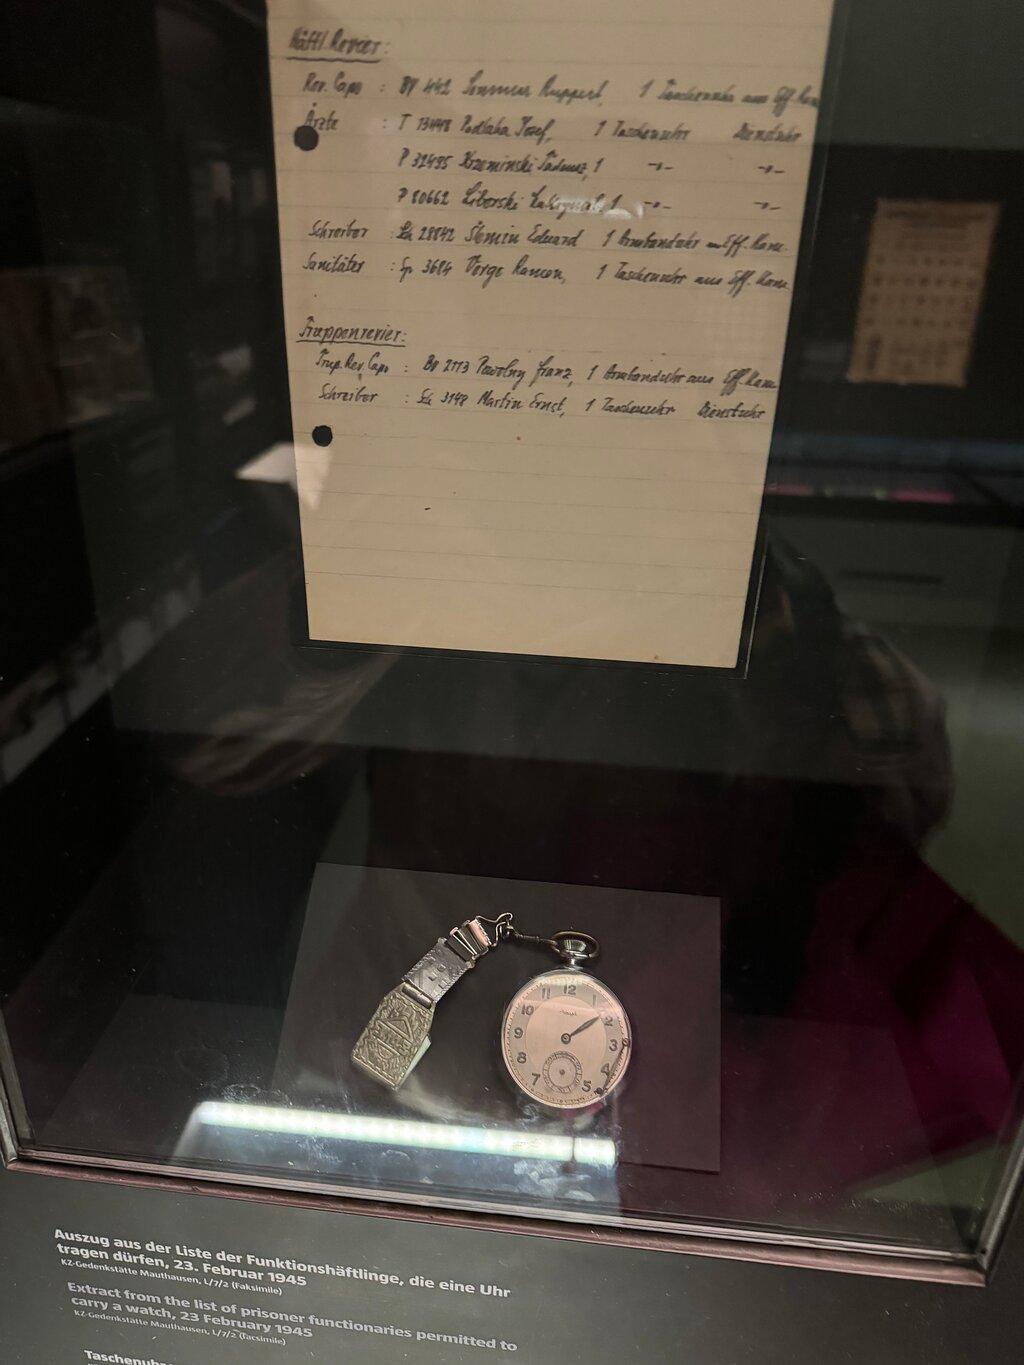 Häftl. Revier:
Rev. Capo : BV 442 Sommer Ruppert, 1 Taschenuhr aus Eff. Kam
Ärzte : T 13448 Podlaha Josef, 1 Taschenuhr Dienstuhr
P 32495 Krzeminski Tadeusz, 1 -"- -"-
P 80662 Liborski 1 -"- -"-
Schreiber : Sch 28842 Eduard 1 Armbanduhr aus Eff. Kam.
Sanitäter : Sp 3684 Verge Ramon, 1 Taschenuhr aus Eff. Kam.
Truppenrevier:
Trup. Rev. Capo : BV 2113 Pawolny Franz, 1 Armbanduhr aus Eff. Kam
Schreiber : Sch 3148 Martin Ernst, 1 Taschenuhr Dienstuhr
11 12 1
10 2
9 3
8 4
7 5
Auszug aus der Liste der Funktionshäftlinge, die eine Uhr
tragen dürfen, 23. Februar 1945
KZ-Gedenkstätte Mauthausen, L/7/2 (Faksimile)
Extract from the list of prisoner functionaries permitted to
carry a watch, 23 February 1945
KZ-Gedenkstätte Mauthausen, L/7/2 (facsimile)